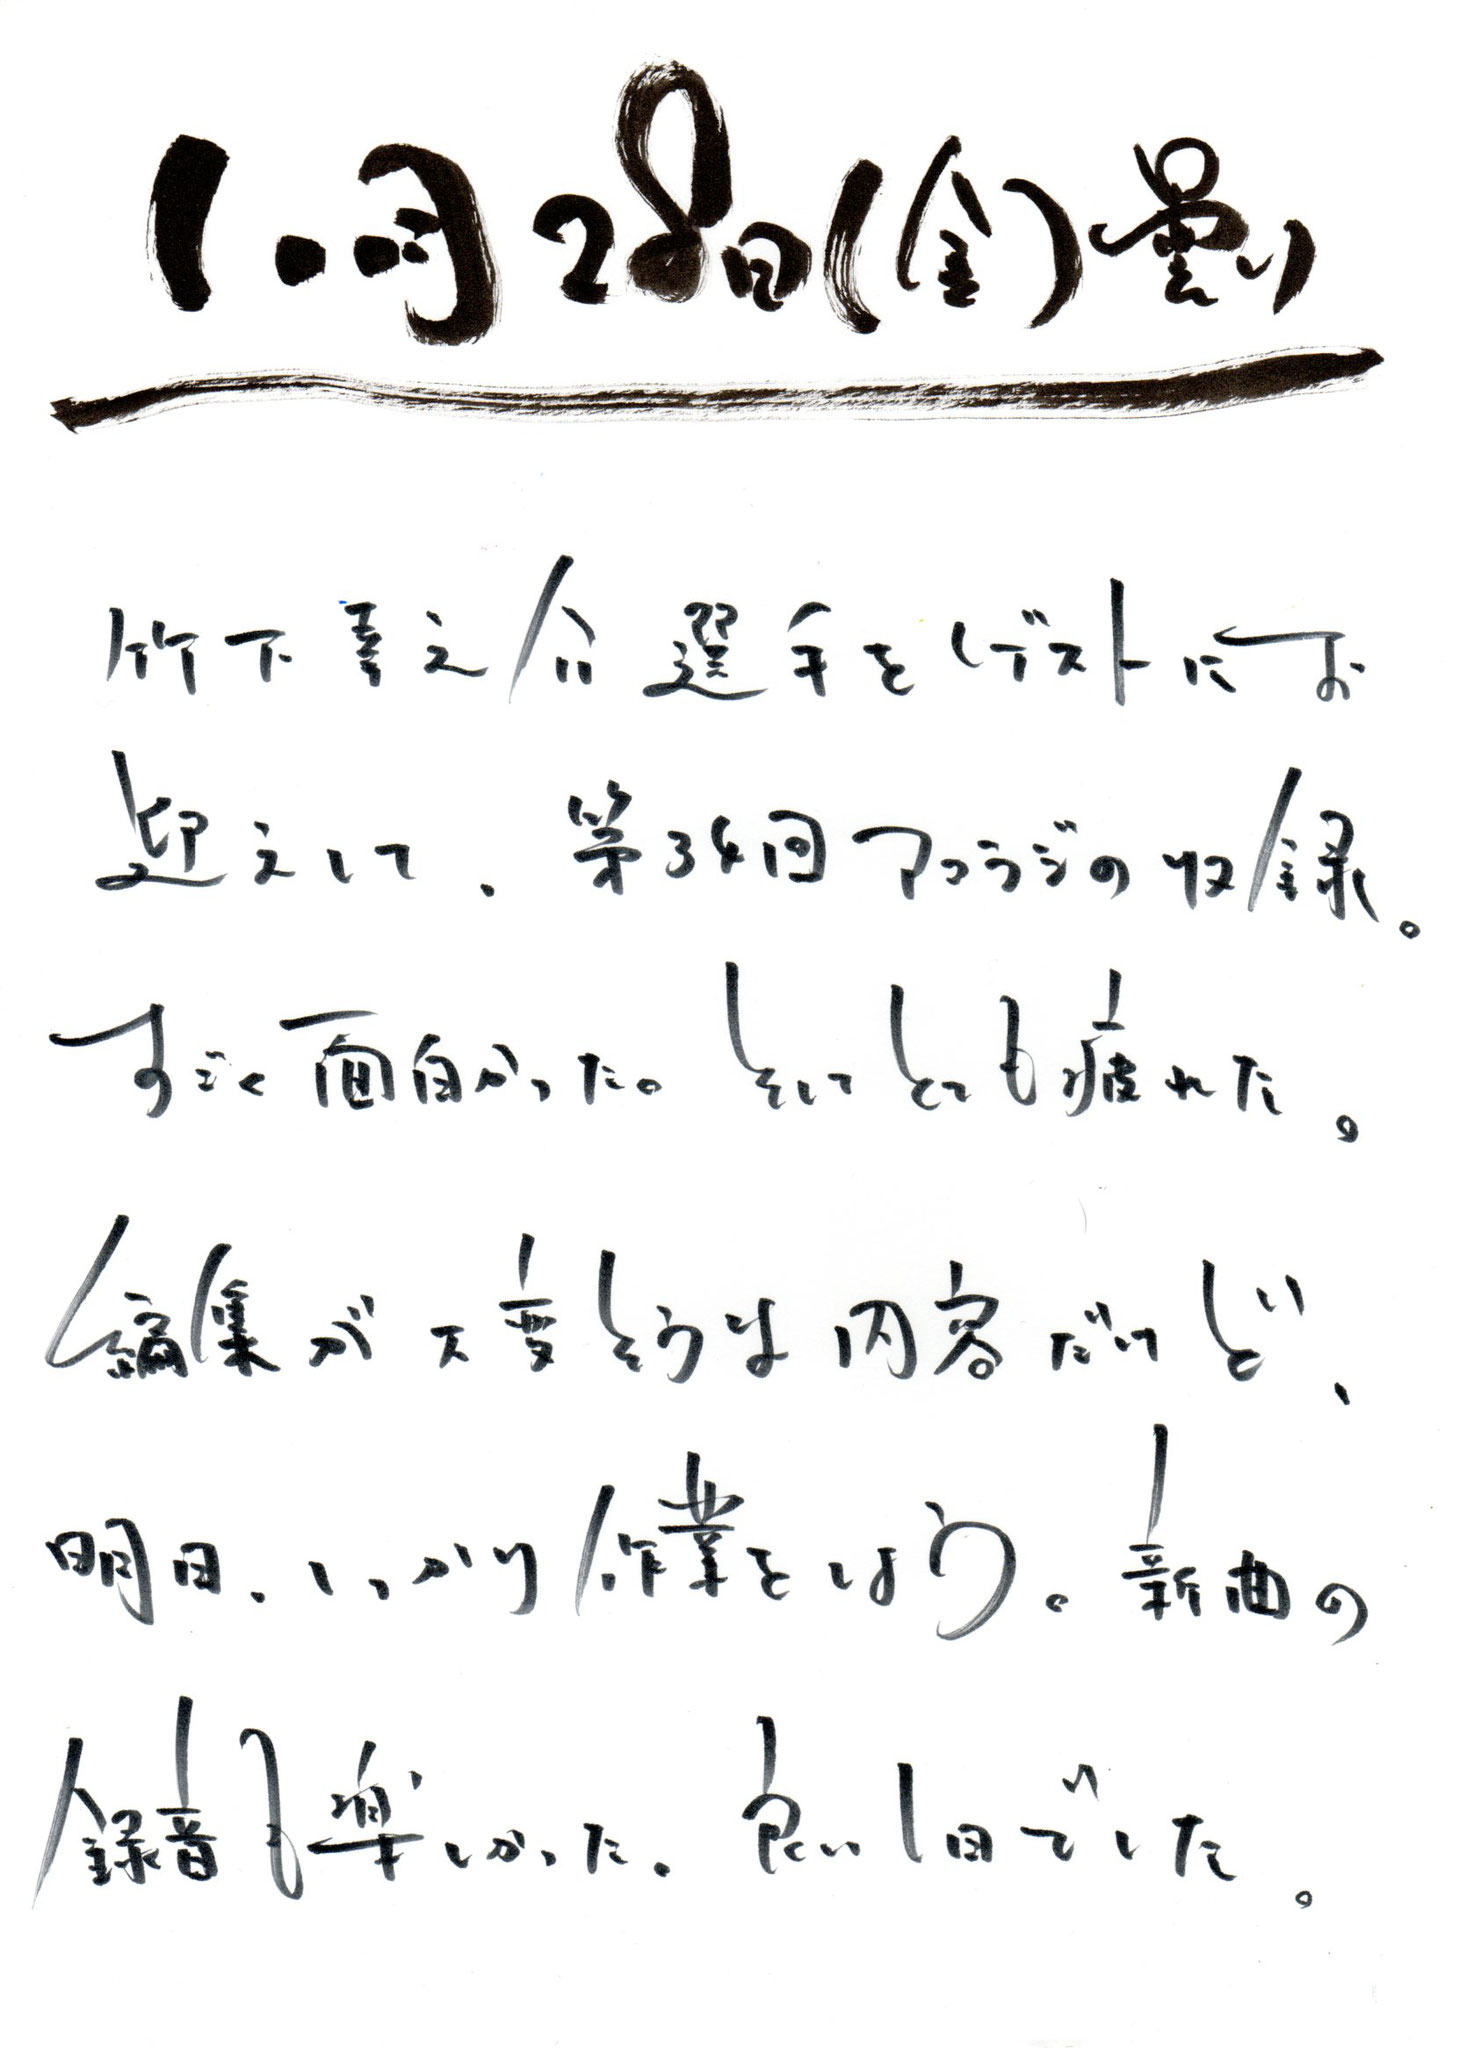 1月28日(金)曇り
竹下幸之介選手をゲストにお
迎えして、第34回アコラジの収録。
すごく面白かった。そしてとても疲れた。
編集が大変そうな内容だけど、
明日、しっかり作業をしよう。新曲の
録音も楽しかった。良い1日でした。